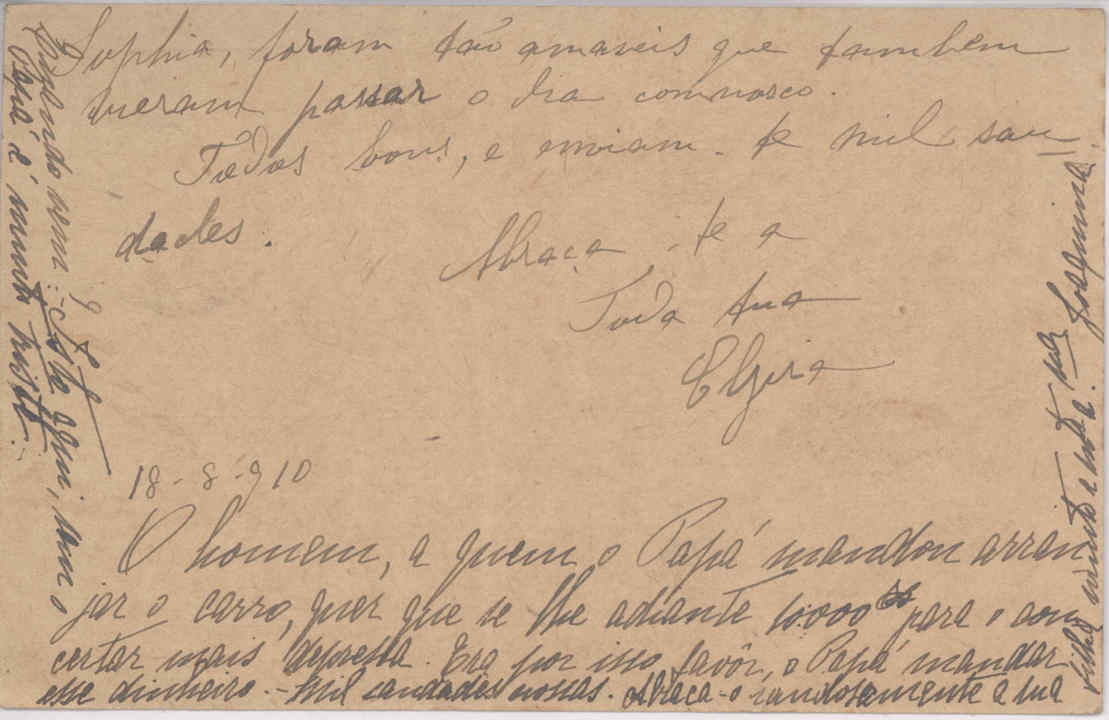 Sophia, foram tão amaveis que tambem
vieram passar o dia comnosco.
Todos bons, e enviam-te mil sau
dades.
Abraça-te a
Toda tua
Elzira
18-8-910
O homem, a quem o Papá mandou arran
jar o carro, quer que se lhe adiante 10.000 rs para o con
certar mais depressa. Era por isso favôr, o Papá mandar
esse dinheiro. - Mil saudades nossas. Abraça-o saudosamente a sua
filha muito e muito sua Joaquina.
Quando vem? - Isto aqui, sem o
Papá é muito triste.